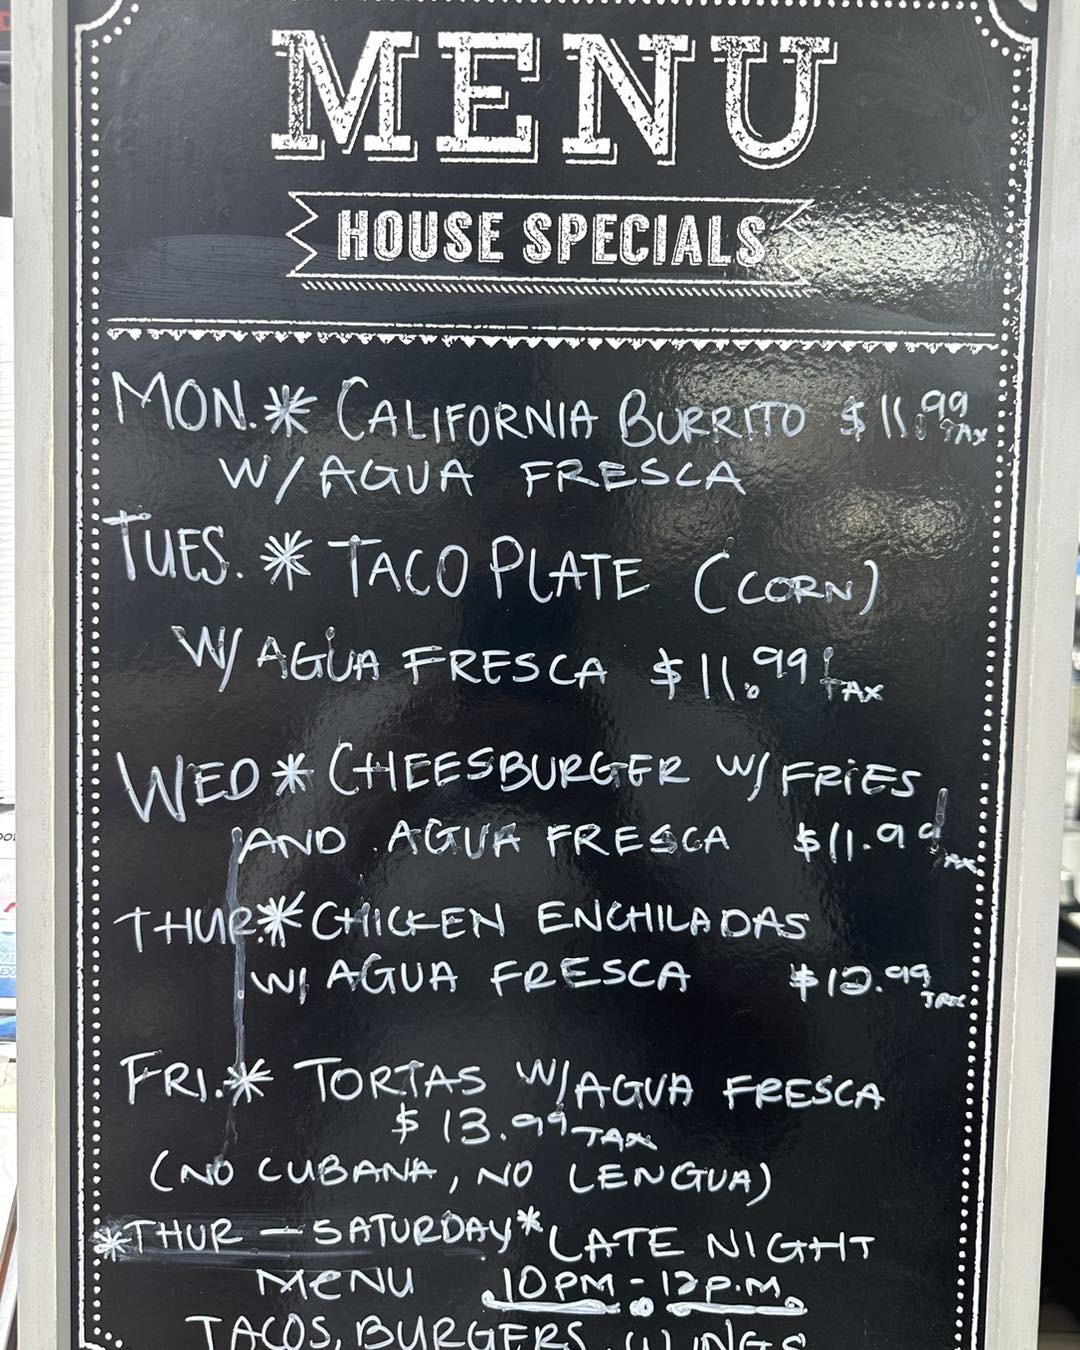 MENU
HOUSE SPECIALS
MON.* CALIFORNIA BURRITO $11.99 TAX
W/ AGUA FRESCA
TUES. * TACO PLATE (CORN)
W/ AGUA FRESCA $11.99 TAX
WED * CHEESBURGER W/ FRIES
AND AGUA FRESCA $11.99 TAX
THUR.* CHICKEN ENCHILADAS
W/ AGUA FRESCA $12.99 TAX
FRI.* TORTAS W/AGUA FRESCA
$13.99 TAX
(NO CUBANA, NO LENGUA)
*THUR — SATURDAY* LATE NIGHT
MENU 10PM - 12P.M.
TACOS, BURGERS, WINGS